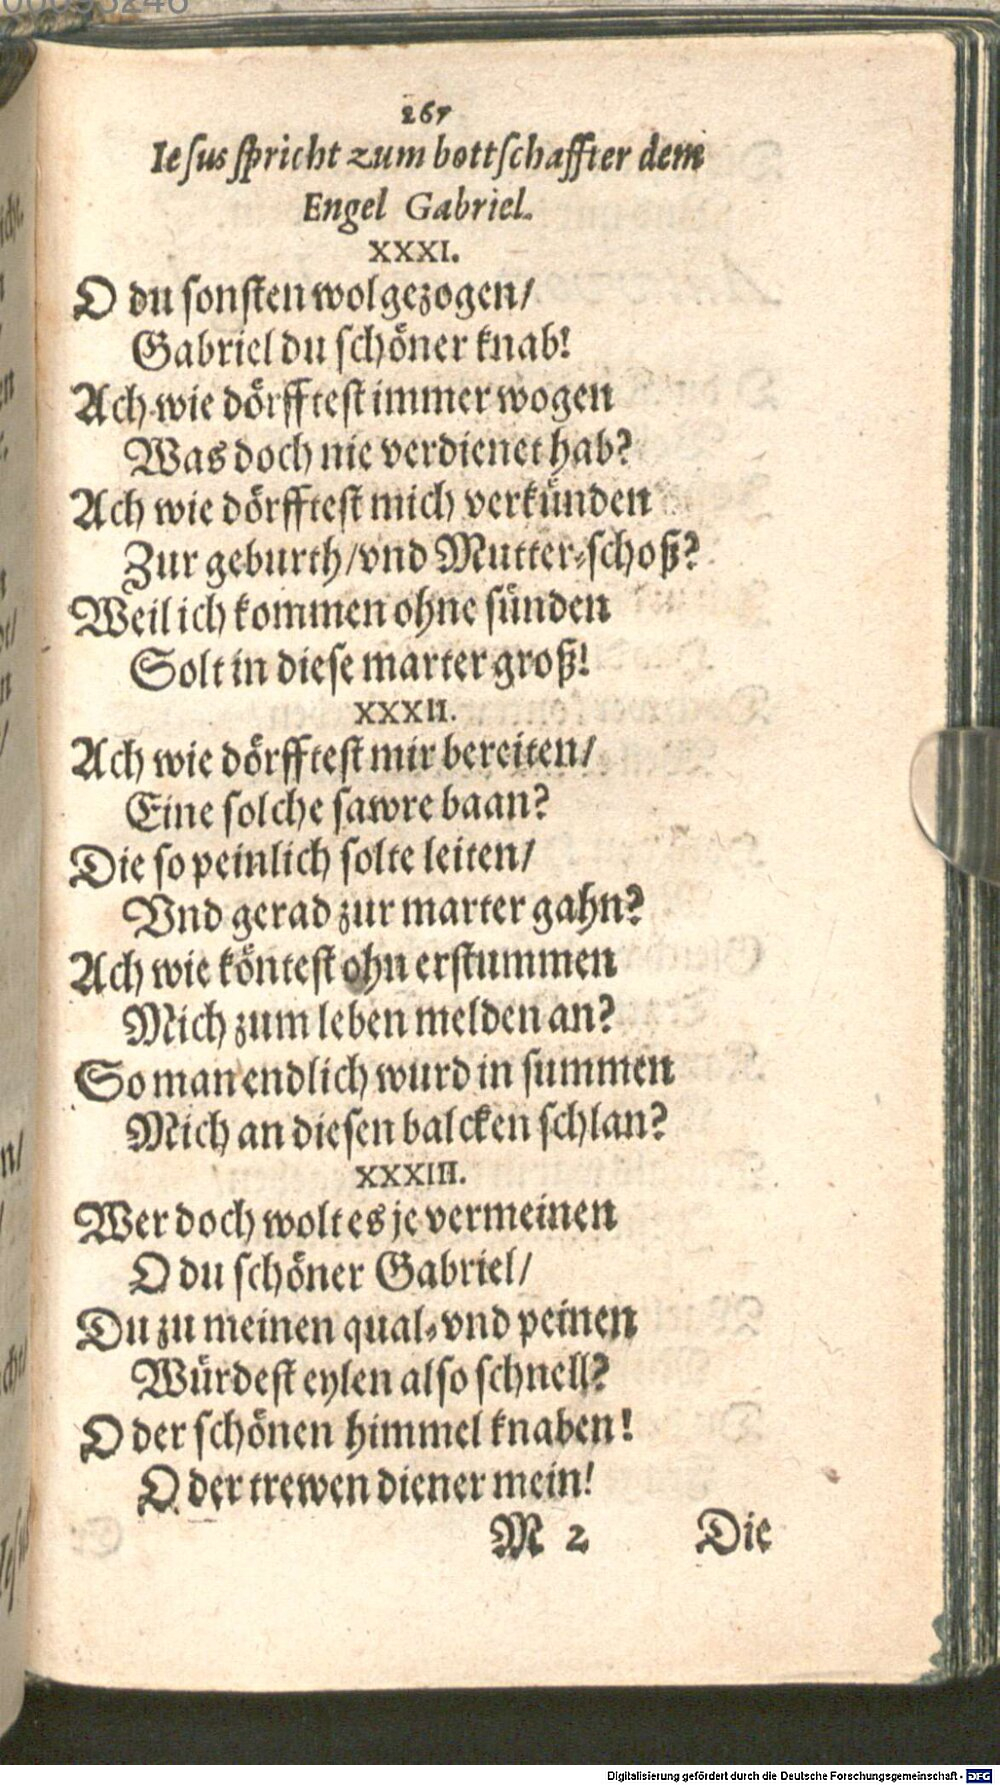 267
Ieſus ſpricht zum bottſchaffter dem
Engel Gabriel.
XXXI.
O du ſonſten wolgezogen/
Gabriel du ſchöner knab!
Ach wie dörffteſt immer wogen
Was doch nie verdienet hab?
Ach wie dörffteſt mich verkünden
Zur geburth/vnd Mutter-ſchoß?
Weil ich kommen ohne ſünden
Solt in dieſe marter groß!
XXXII.
Ach wie dörffteſt mir bereiten/
Eine ſolche ſawre baan?
Die ſo peinlich ſolte leiten/
Vnd gerad zur marter gahn?
Ach wie könteſt ohn erſtummen
Mich zum leben melden an?
So man endlich wurd in ſummen
Mich an dieſen balcken ſchlan?
XXXIII.
Wer doch wolt es je vermeinen
O du ſchöner Gabriel/
Du zu meinen qual-vnd peinen
Würdeſt eylen alſo ſchnell?
O der ſchönen himmel knaben!
O der trewen diener mein!
M 2 Die
Digitalisierung gefördert durch die Deutsche Forschungsgemeinschaft - DFG